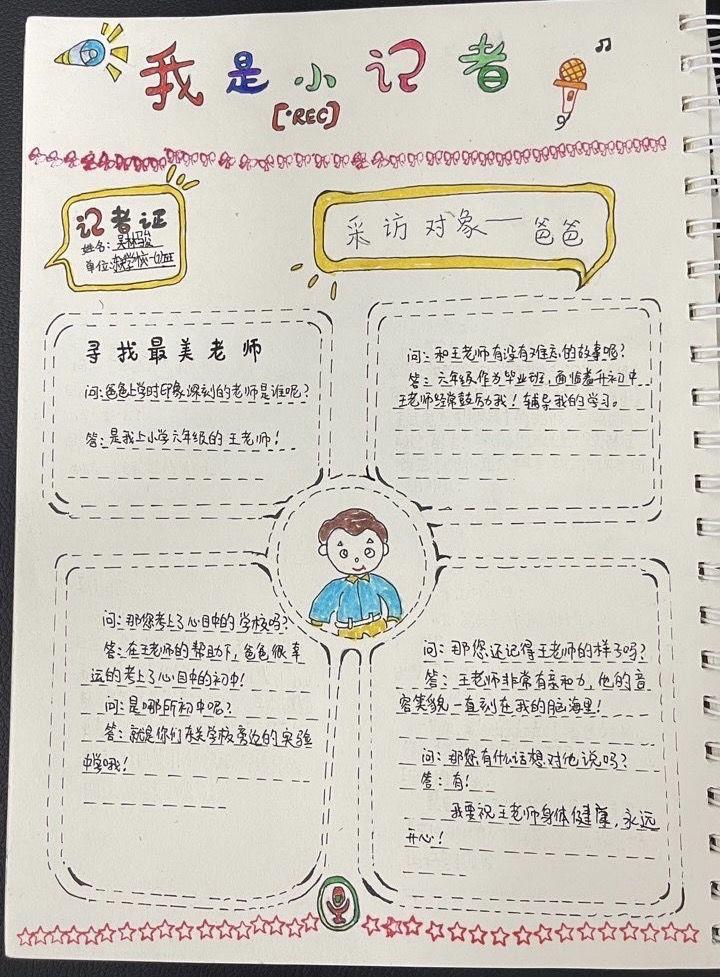 我是小记者
[·REC]
记者证
姓名：吴林骏
单位：东关学校一(1)班
采访对象——爸爸
寻找最美老师
问：爸爸上学时印象深刻的老师是谁呢？
答：是我上小学六年级的王老师！
问：和王老师有没有难忘的故事呢？
答：六年级作为毕业班，面临着升初中
王老师经常鼓励我！辅导我的学习。
问：那您考上了心目中的学校吗？
答：在王老师的帮助下，爸爸很幸
运的考上了心目中的初中！
问：是哪所初中呢？
答：就是你们东关学校旁边的实验
中学哦！
问：那您还记得王老师的样子吗？
答：王老师非常有亲和力，他的音
容笑貌一直刻在我的脑海里！
问：那您有什么话想对他说吗？
答：有！
我要祝王老师身体健康，永远
开心！